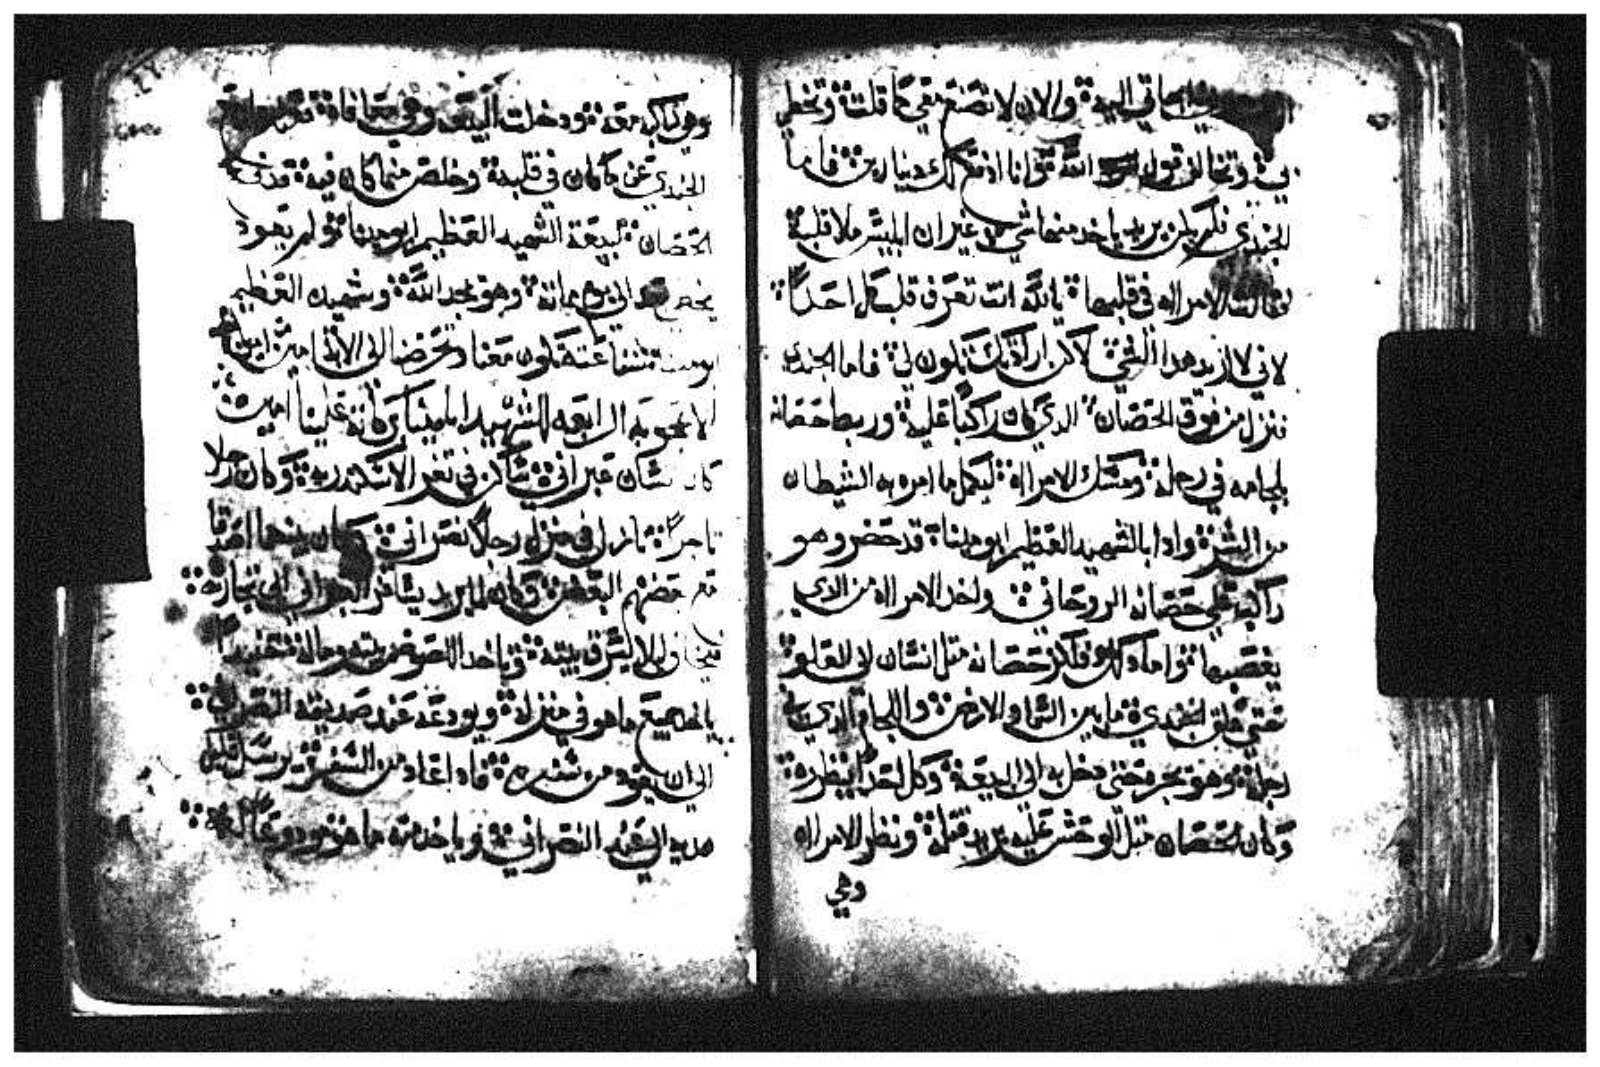 في البيعة والان لا تصنع معي كما قلت وتخطي
بي وتخالف قول الله وانا ادفع لك دينارين فاما
الجندي فلم يكن يريد ياخد منها شي غير ان ابليس ملا قلبه
فقالت الامراه في قلبها يا الله انت تعرف قلب كل احداً
لاني لا اريد هدا الشي لاكن ارادتك تكون لي فاما الجندي
فنزل من فوق الحصان الدي كان راكباً عليه وربط حصانه
بلجامه في رجله ومسك الامراه ليكمل ما امره به الشيطان
من الشر وادا بالشهيد العظيم ابو مينا قد حضر وهو
راكب على حصانه الروحاني واخد الامراه من الدي
يغصبها واما دلك فكر حصانه مثل انسان الي العلو
حتى علق الجندي ما بين السما والارض واللجام الدي في
رجله وهو يجره حتى دخل به الى البيعة وكل احداً ينظره
وكان الحصان مثل الوحش عليه يريد قتله ونظر الامراه
وهي
وهو راكب معه ودخلت البيعه وهي معافاة
الجندي عن ما كان في قلبه وخلص منما كان فيه
الحصان لبيعة الشهيد العظيم ابو مينا ولم يعود
الى يوم مماته وهو يمجد الله وشهيده العظيم
شفاعته تكون معنا وتحرضنا الى الابد امين
الاعجوبه الرابعه للشهيد ابا مينا بركاته علينا امين
كان انسان عبراني ساكن في تغر الاسكندريه وكان رجلا
تاجراً نازل في منزل رجلاً نصراني وكان بينهما
مع بعضهم البعض وكان لما يريد يسافر العبراني الى تجاره
فيخاف ليلا يسرق بيته وياخد اللصوص بيته وماله
ياخد جميع ما هو في منزله ويودعه عند صديقه النصراني
الى ان يعود من سفره فادا عاد من السفر يرسل
هديه الى عند النصراني وياخد منه ما هو مودوعاً